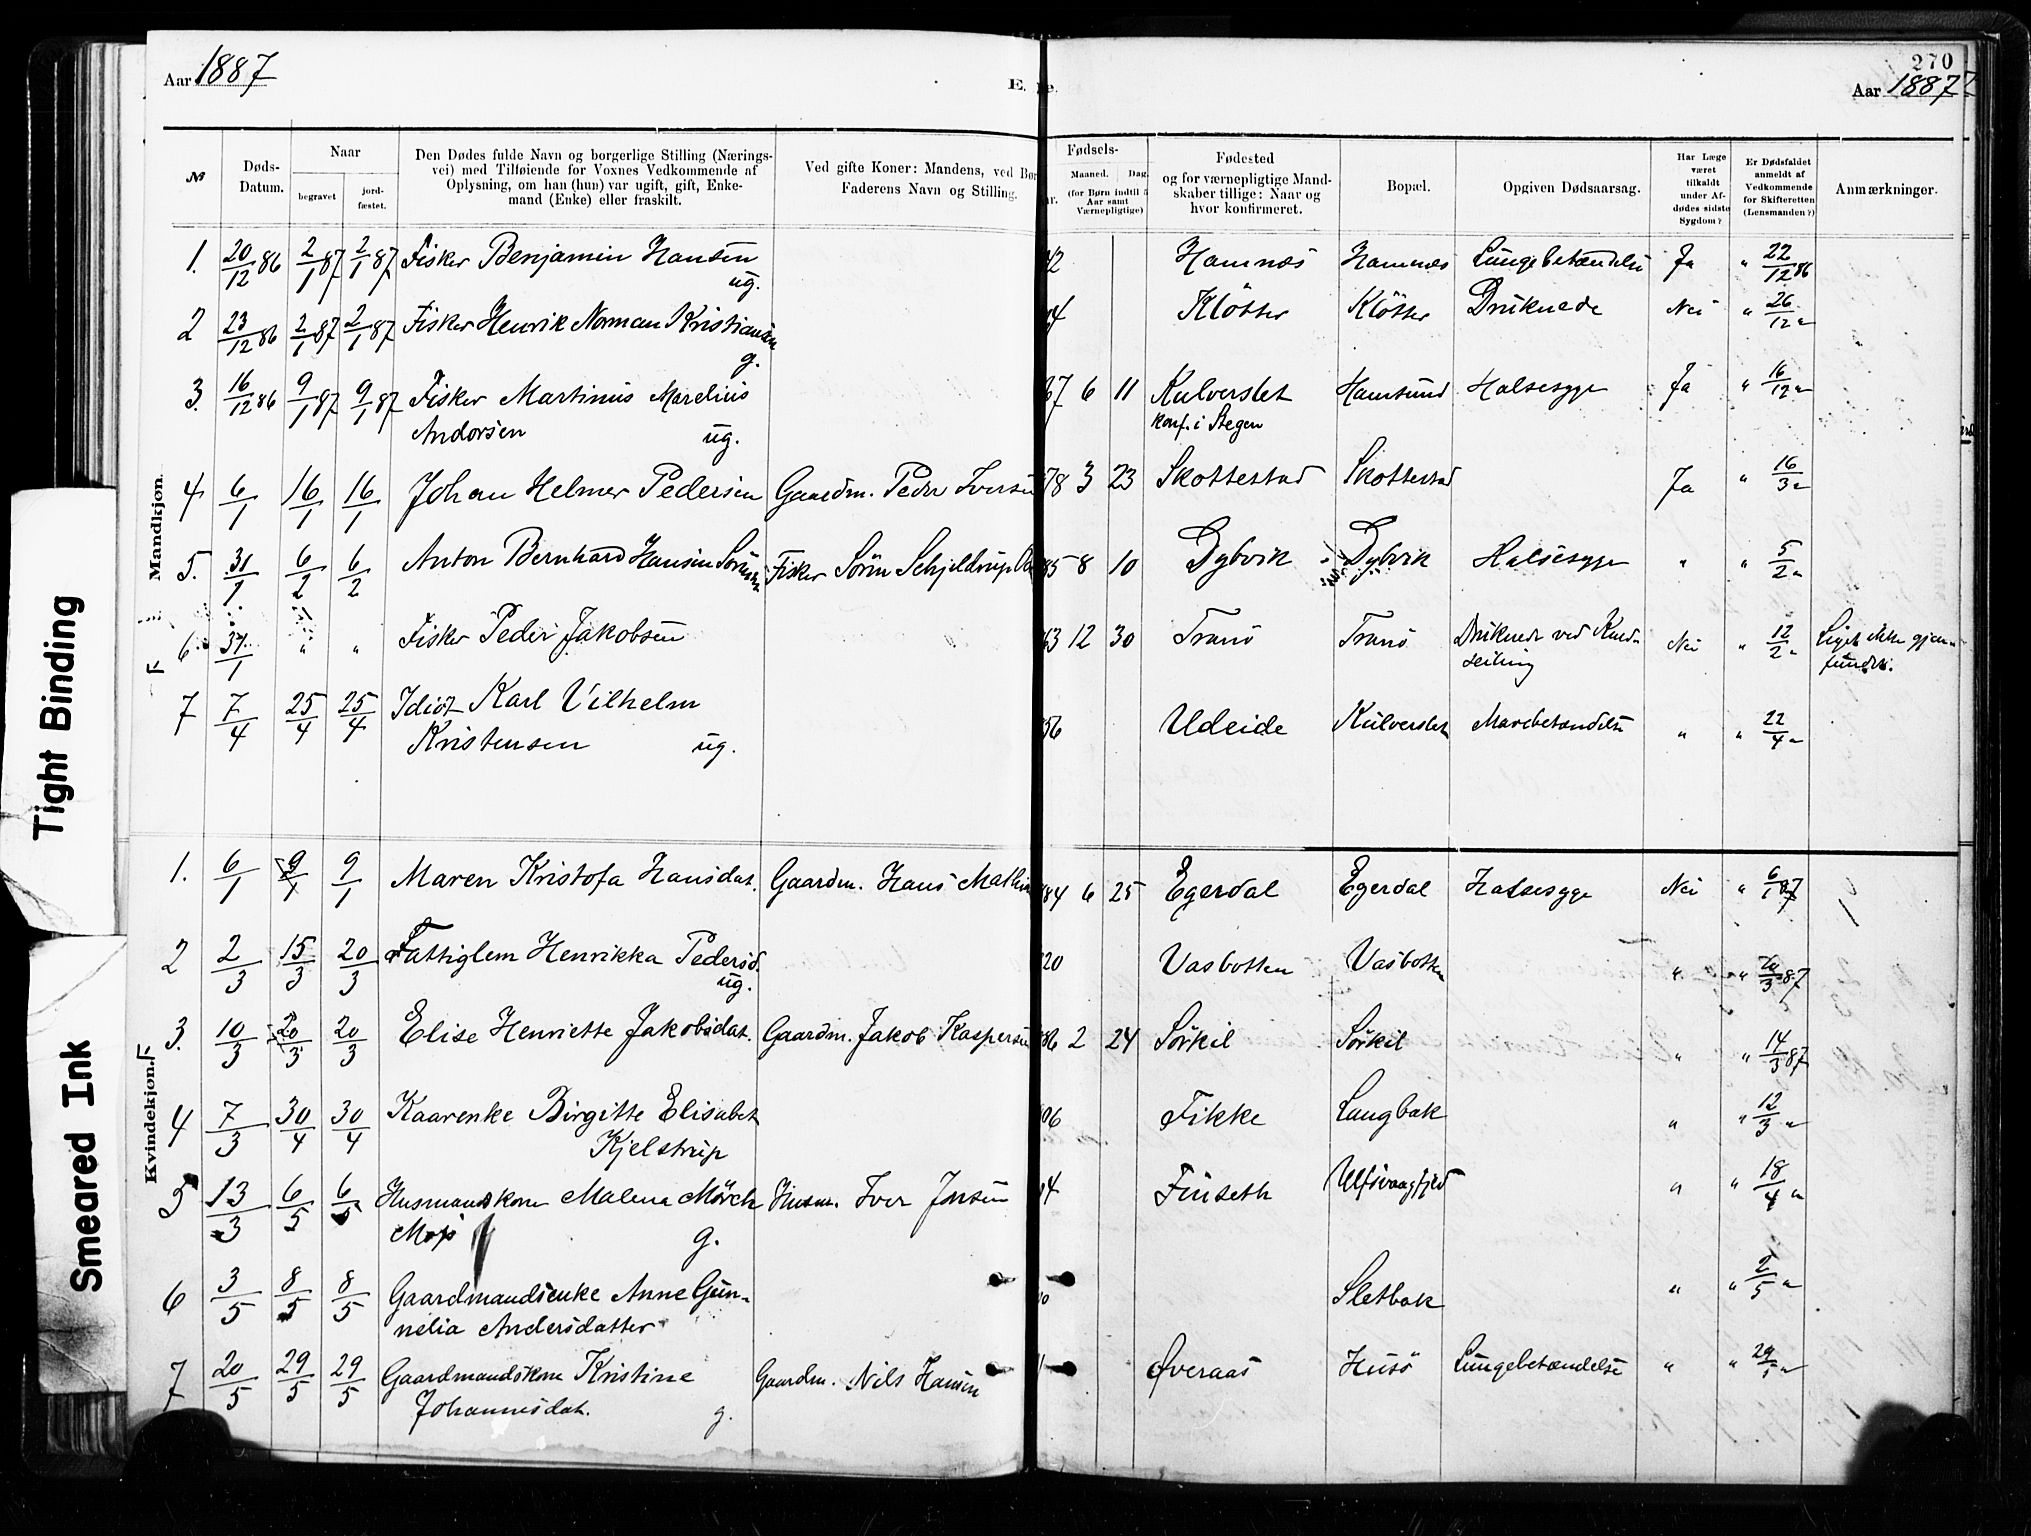 270
Aar 1887
E.
e.
Aar 1887
№
Døds-
Datum.
Naar
begravet
jord-
fæstet.
Den Dødes fulde Navn og borgerlige Stilling (Nærings-
vei) med Tilføiende for Voxnes Vedkommende af
Oplysning, om han (hun) var ugift, gift, Enke-
mand (Enke) eller fraskilt.
Ved gifte Koner: Mandens, ved Bør
Faderens Navn og Stilling.
Fødsels-
Maaned.
Dag.
(for Børn indtil 5
Aar samt
Værnepligtige)
Fødested
og for værnepligtige Mand-
skaber tillige: Naar og
hvor konfirmeret.
Bopæl.
Opgiven Dødsaarsag.
Har Læge
været
tilkaldt
under Af-
dødes sidste
Sygdom?
Er Dødsfaldet
anmeldt af
Vedkommende
for Skifteretten
(Lensmanden?)
Anmærkninger.
Mandkjøn.
1. 20/12 86 2/1 87 2/1 87 Fisker Benjamin Hansen 42 Hamnæs Hamnæs Lungebetændelse Ja " 22/12 86
ug.
2 23/12 86 2/1 87 2/1 87 Fisker Henrik Norman Kristiansen 4 Kløtter Kløtter Druknede Nei " 26/12 "
g.
3. 16/12 86 9/1 87 9/1 87 Fisker Martinus Marelius 67 6 11 Kulverslet Hamsund Halsesyge Ja " 16/12 "
Andorsen ug. konf. i Stegen
4 6/1 16/1 16/1 Johan Helmer Pedersen Gaardm. Peder Iversen 78 3 23 Skottestad Skottestad Ja " 16/3 "
5. 31/1 6/2 6/2 Anton Bernhard Hansen Sørensen Fisker Sørn Schjeldrup 85 8 10 Dybvik Dybvik Halsesyge " " 5/2 "
6 31/1 " " Fisker Peder Jakobsen 63 12 30 Tranø Tranø Druknede ved Kuld- Nei " 12/2 " Liget ikke gjen-
seiling fundet.
7 7/4 25/4 25/4 Idiot Karl Vilhelm 56 Udeide Kulverslet Mavebetændelse " " 22/4 "
Kristensen ug.
Kvindekjøn.
1. 6/1 9/1 9/1 Maren Kristofa Hansdat. Gaardm. Hans Mathi 84 6 25 Egerdal Egerdal Halsesyge Nei " 6/1 87
2 2/3 15/3 20/3 Fattiglem Henrikka Pedersd. 20 Vasbotten Vasbotten " " 20/3 87
ug.
3. 10/3 20/3 20/3 Elise Henriette Jakobsdat. Gaardm. Jakob Kaspersen 86 2 24 Sørkil Sørkil " " 14/3 87
4 7/3 30/4 30/4 Kaarenke Birgitte Elisabet 06 Fikke Langbak " " 12/3 "
Kjelstrup
5 13/3 6/5 6/5 Husmandskone Malena Mørch Husm. Iver Jonsen 4 Finseth Ulfsvaagfjeld " " 18/4 "
g.
6 3/5 8/5 8/5 Gaardmandsenke Anne Gun- Sletbak " " 2/5 "
nelia Andersdatter
7 20/5 29/5 29/5 Gaardmandskone Kristine Gaardm. Nils Hansen Øveraas Husø Lungebetændelse " " 29/5 "
Johannesdat. g.
Tight Binding
Smeared Ink